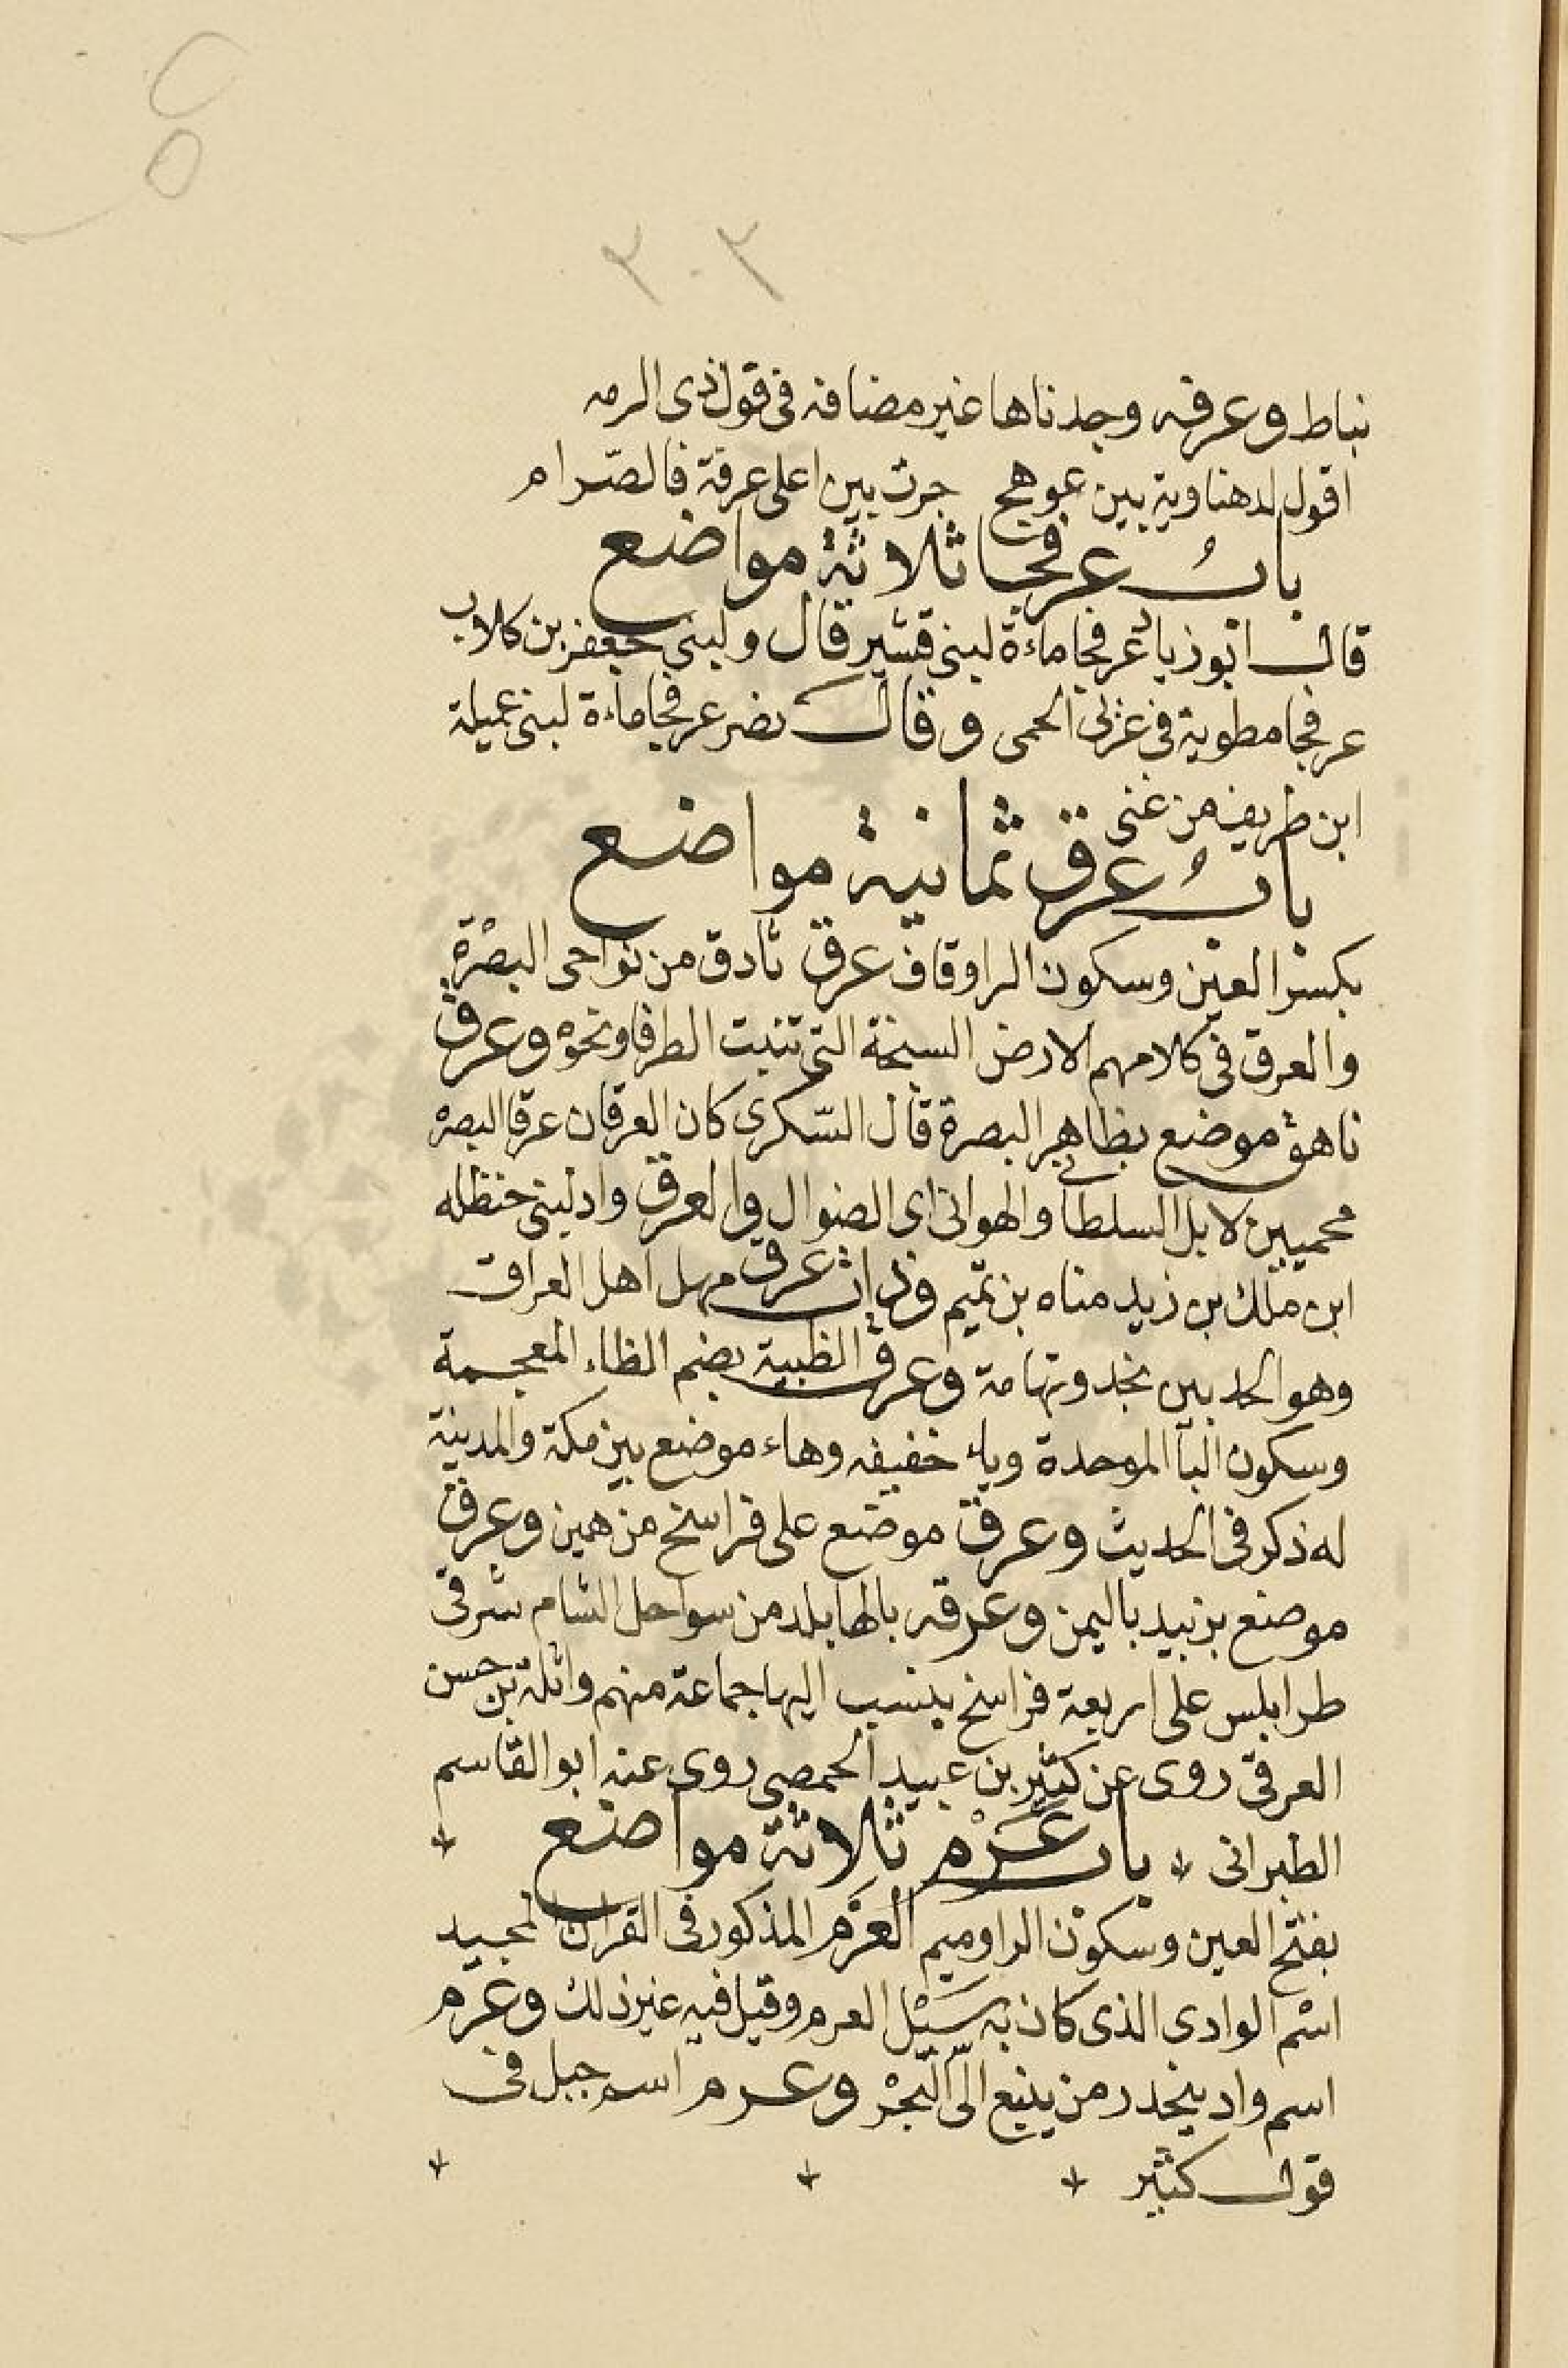 ٣٠٣
نباط وعرفه وجدناها غير مضافه فى قول ذى الرمه
اقول لدهناوية بين عوهج جرت بين اعلى عرفة فالصّرام
بابُ عرفجا ثلاثة مواضع
قال ابو زياد عرفجا ماءة لبنى قشير قال ولبنى جعفر بن كلاب
عرفجا مطوية فى غربى الحمى وقال نصر عرفجا ماءة لبنى عميلة
ابن طريف من غنى
بابُ عرق ثمانية مواضع
بكسر العين وسكون الرا وقاف عرق ثادق من نواحى البصرة
والعرق فى كلامهم الارض السبخة التى تنبت الطرفا ونحوه وعرق
ناهق موضع بظاهر البصرة قال السّكرى كان العرقان عرقا البصره
محميين لابل السلطان والهوافى اى الضوال والعرق واد لبنى حنظله
ابن ملك بن زيد مناه بن تميم وذات عرق مهل اهل العراق
وهو الحد بين نجد وتهامة وعرق الظبية بضم الظاء المعجمة
وسكون البآ الموحدة وياء خفيفه وهاء موضع بين مكة والمدينة
له ذكر فى الحديث وعرق موضع على فراسخ من هيت وعرق
موضع بزبيد باليمن وعرقه بالها بلد من سواحل الشام شرقى
طرابلس على اربعة فراسخ ينسب اليها جماعة منهم واثلة بن حسن
العرقى روى عن كثير بن عبيد الحمصى روى عنه ابو القاسم
الطبرانى باب عَرْم ثلاثة مواضع
بفتح العين وسكون الرا وميم العرم المذكور فى القرآن المجيد
اسم الوادى الذى كان به سَيْل العرم وقيل فيه غير ذلك وعرم
اسم واد ينحدر من ينبع الى البحر وعرم اسم جبل فى
قول كثير